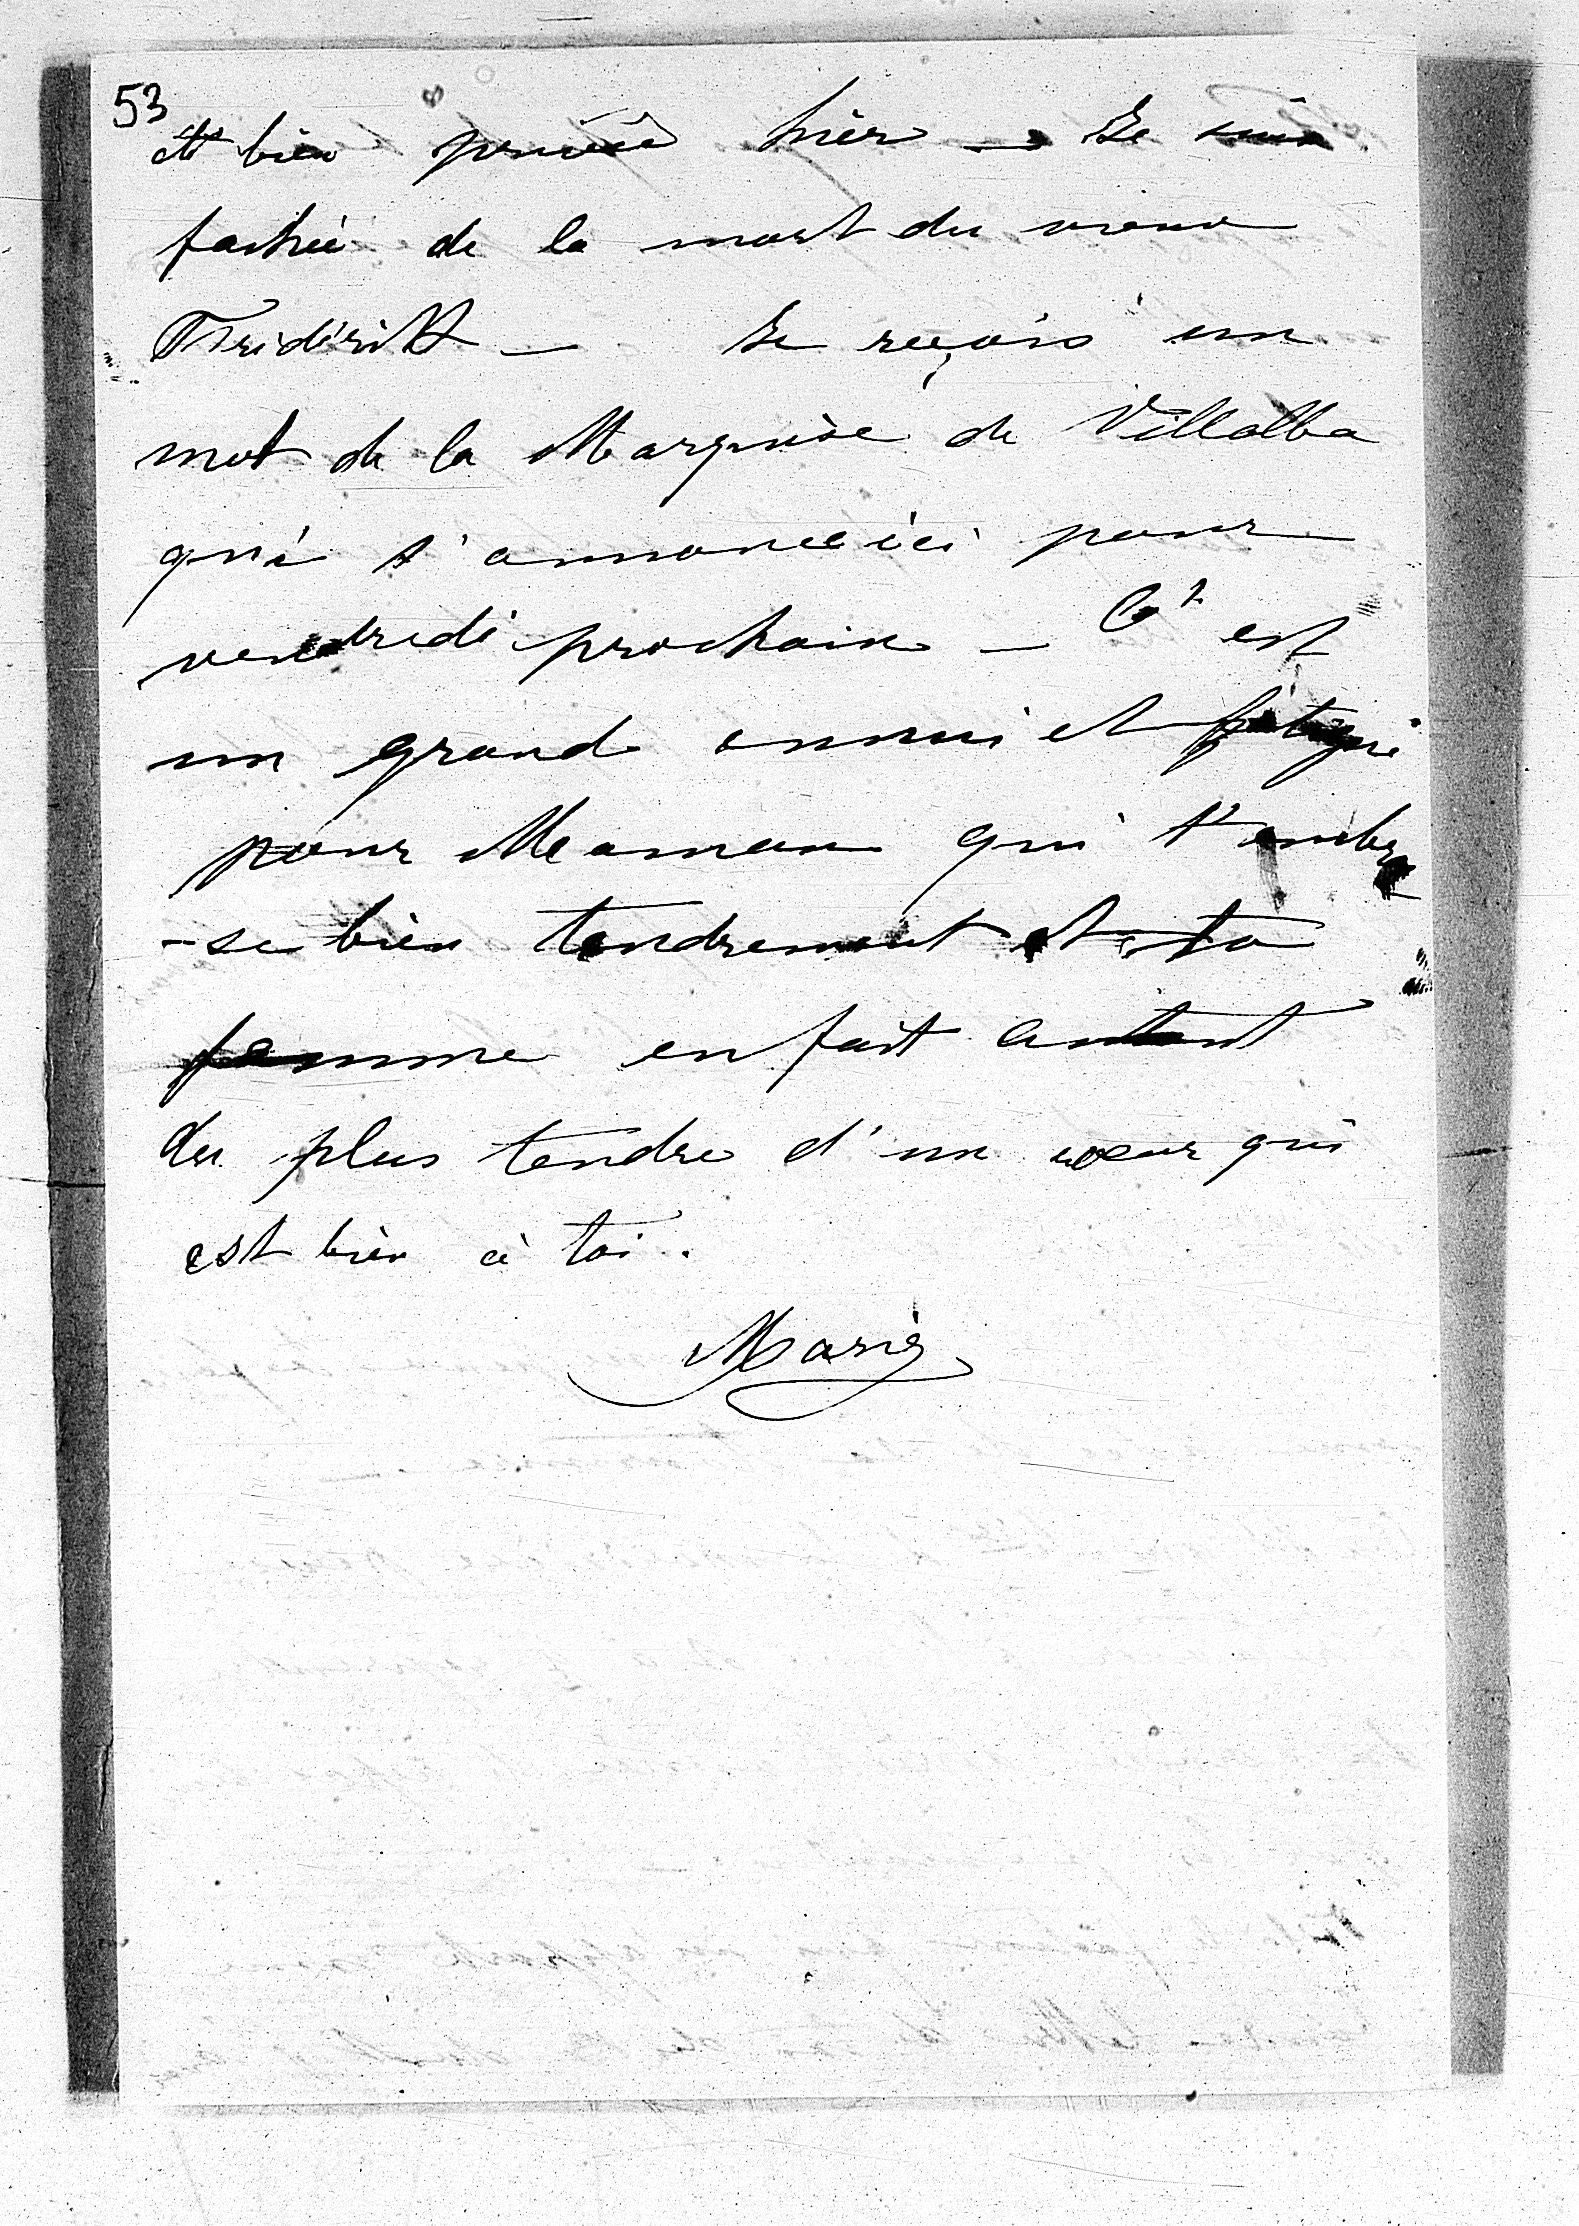 53
et bien hier — Je suis
fachée de la mort du vieux
Fridérikt — Je reçois un
mot de la Marquise de Villalba
qui s'annonce ici pour
vendredi prochain — C'est
un grand ennui et fatigue
pour Maman qui t'embra
-se bien tendrement et ta
femme en fait autant
du plus tendre d'un cœur qui
est bien à toi.
Marie